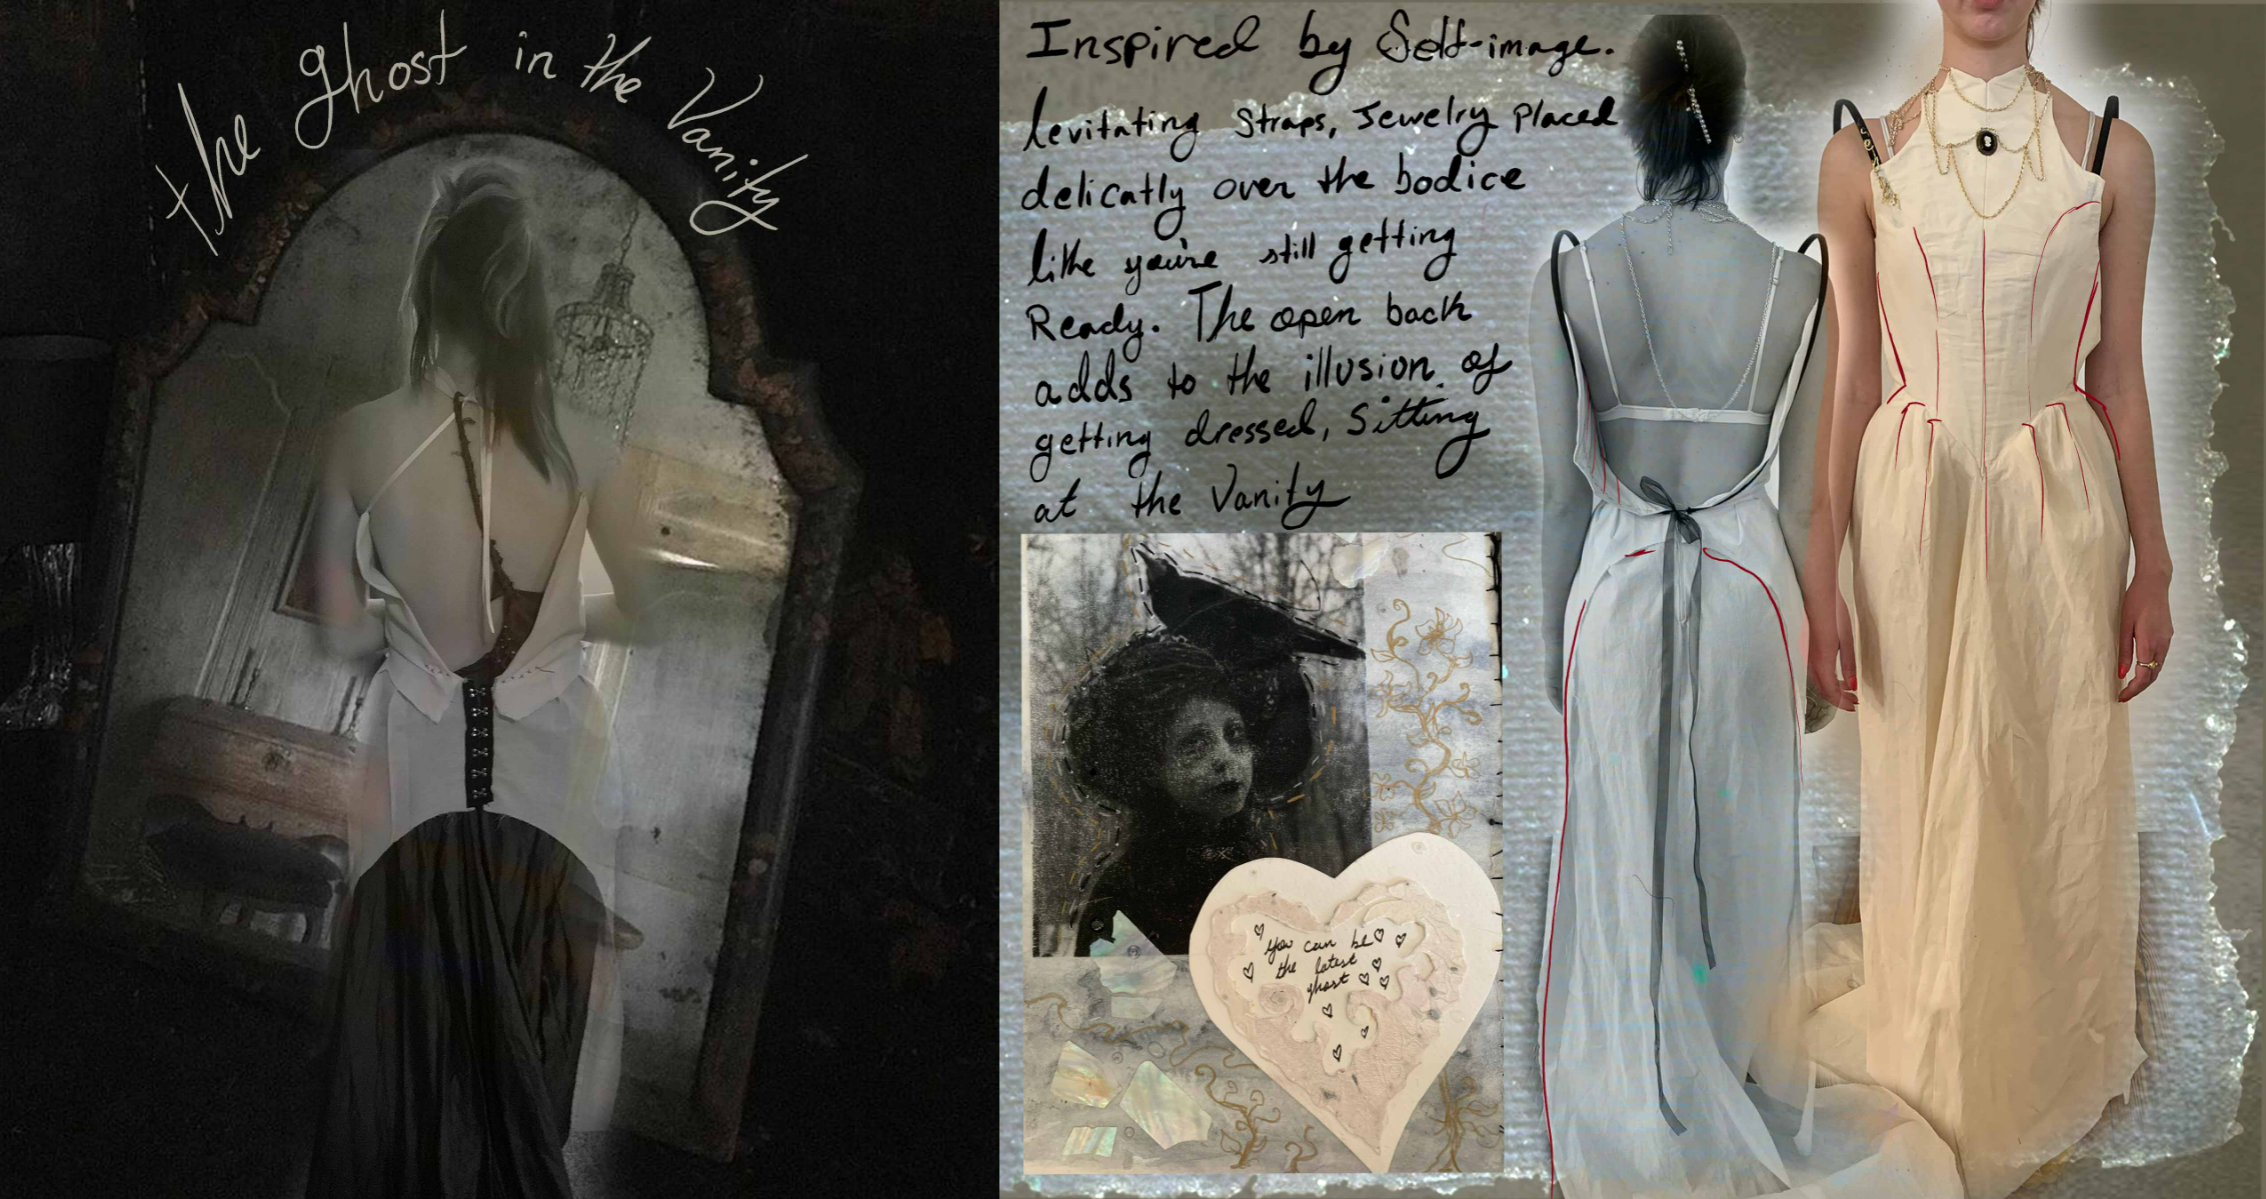 the ghost in the Vanity
Inspired by Self-image.
levitating Straps, Jewelry Placed
delicatly over the bodice
like you're still getting
Ready. The open back
adds to the illusion of
getting dressed, Sitting
at the Vanity
You can be
the latest
ghost